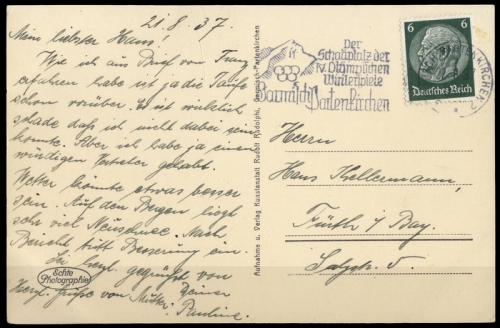 21.8.37.
Mein liebster Hans!
Wie ich aus Brief von Franz
erfahren habe ist ja die Taufe
schon vorüber. Es ist wirklich
schade daß ich nicht dabei sein
konnte. Aber ich habe ja einen
würdigen Vertreter gehabt.
Wetter könnte etwas besser
sein. Auf den Bergen liegt
sehr viel Neuschnee. Nach
Bericht tritt Besserung ein.
Sei herzl. gegrüßt von
Deiner
Herzl. Grüße von Mutter. Pauline.
Echte
Photographie
Aufnahme u. Verlag Kunstanstalt Rudolf Rudolphi, Garmisch-Partenkirchen
Der
Schauplatz der
IV. Olympischen
Winterspiele
Garmisch
Partenkirchen
6 6
Deutsches Reich
Herrn
Hans Kellermann,
Fürth i/Bay.